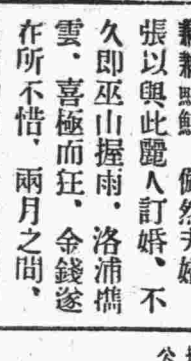 儼然夫婦
張以與此麗人訂婚、不
久卽巫山握雨．洛浦攜
雲．喜極而狂．金錢遂
在所不惜．兩月之間、